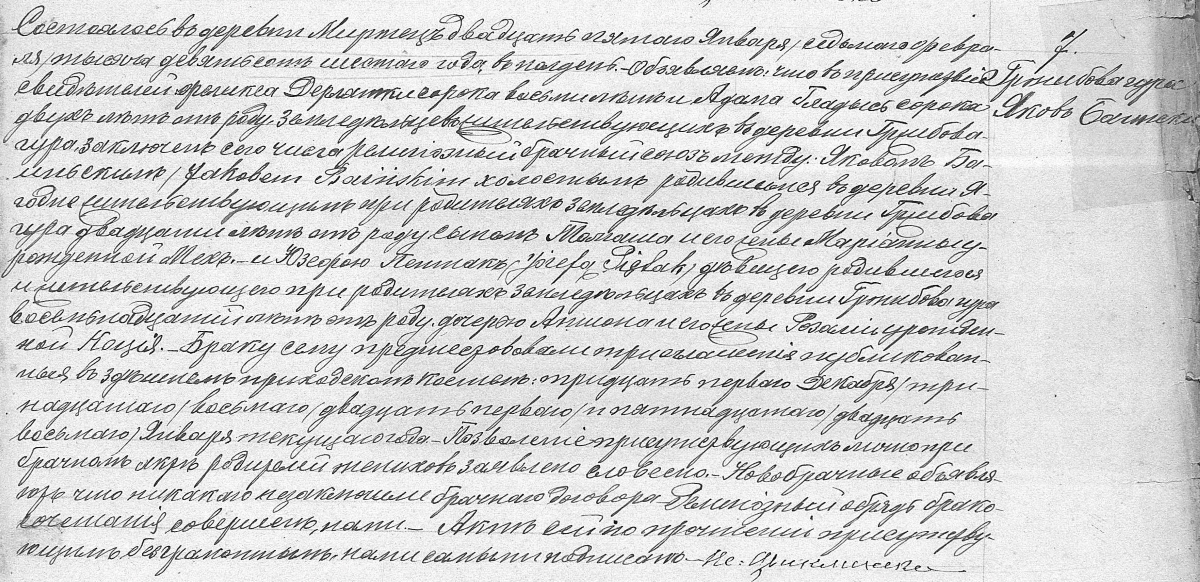 Состоялось въ деревни Миртецъ двадцать пятаго Января /седьмаго февра-
ля/ тысяча девятьсотъ шестаго года, въ полдень. - Объявляемъ; что въ присутствіи
свидѣтелей Феликса сорока восьми лѣтъ и Адама Гладысь сорока
двухъ лѣтъ отъ роду земледѣльцевъ жительствующихъ въ деревни Гржибова-
гура, заключенъ сего числа религіозный брачный союзъ между: Яковомъ Ба-
иньскимъ /Jakobem Baińskim/ холостымъ родившимся въ деревни Я-
годне жительствующимъ при родителяхъ земледѣльцахъ въ деревни Гржибова
гура двадцати лѣтъ отъ роду, сыномъ Томаша и его жены Маріанны у-
рожденной Мехъ. - и Юзефою Пентакъ /Józefą Piętak/ дѣвицею родившеюся
и жительствующею при родителяхъ земледѣльцахъ въ деревни Гржибова гура
восьмьнадцати лѣтъ отъ роду, дочерью Антона и его жены Розаліи урожден-
ной Націл. - Браку сему предшествовали три оглашенія публикован-
ныя въ здѣшнемъ приходскомъ костелѣ: тридцать перваго Декабря /три-
надцатаго/ восьмаго /двадцать перваго/ и пятнадцатаго /двадцать
восьмаго/ Января текущаго года. - Позволеніе присутствующихъ лично при
брачномъ актѣ родителей жениховъ заявлено словесно. - Новобрачные объявля-
ютъ что никакаго незаключили брачнаго договора Религіозный обрядъ брако-
сочетанія совершенъ нами. - Актъ сей по прочтеніи присутству-
ющимъ безграмотнымъ, нами самыми подписанъ. - Кс.
7.
Гржибова гура
Яковъ